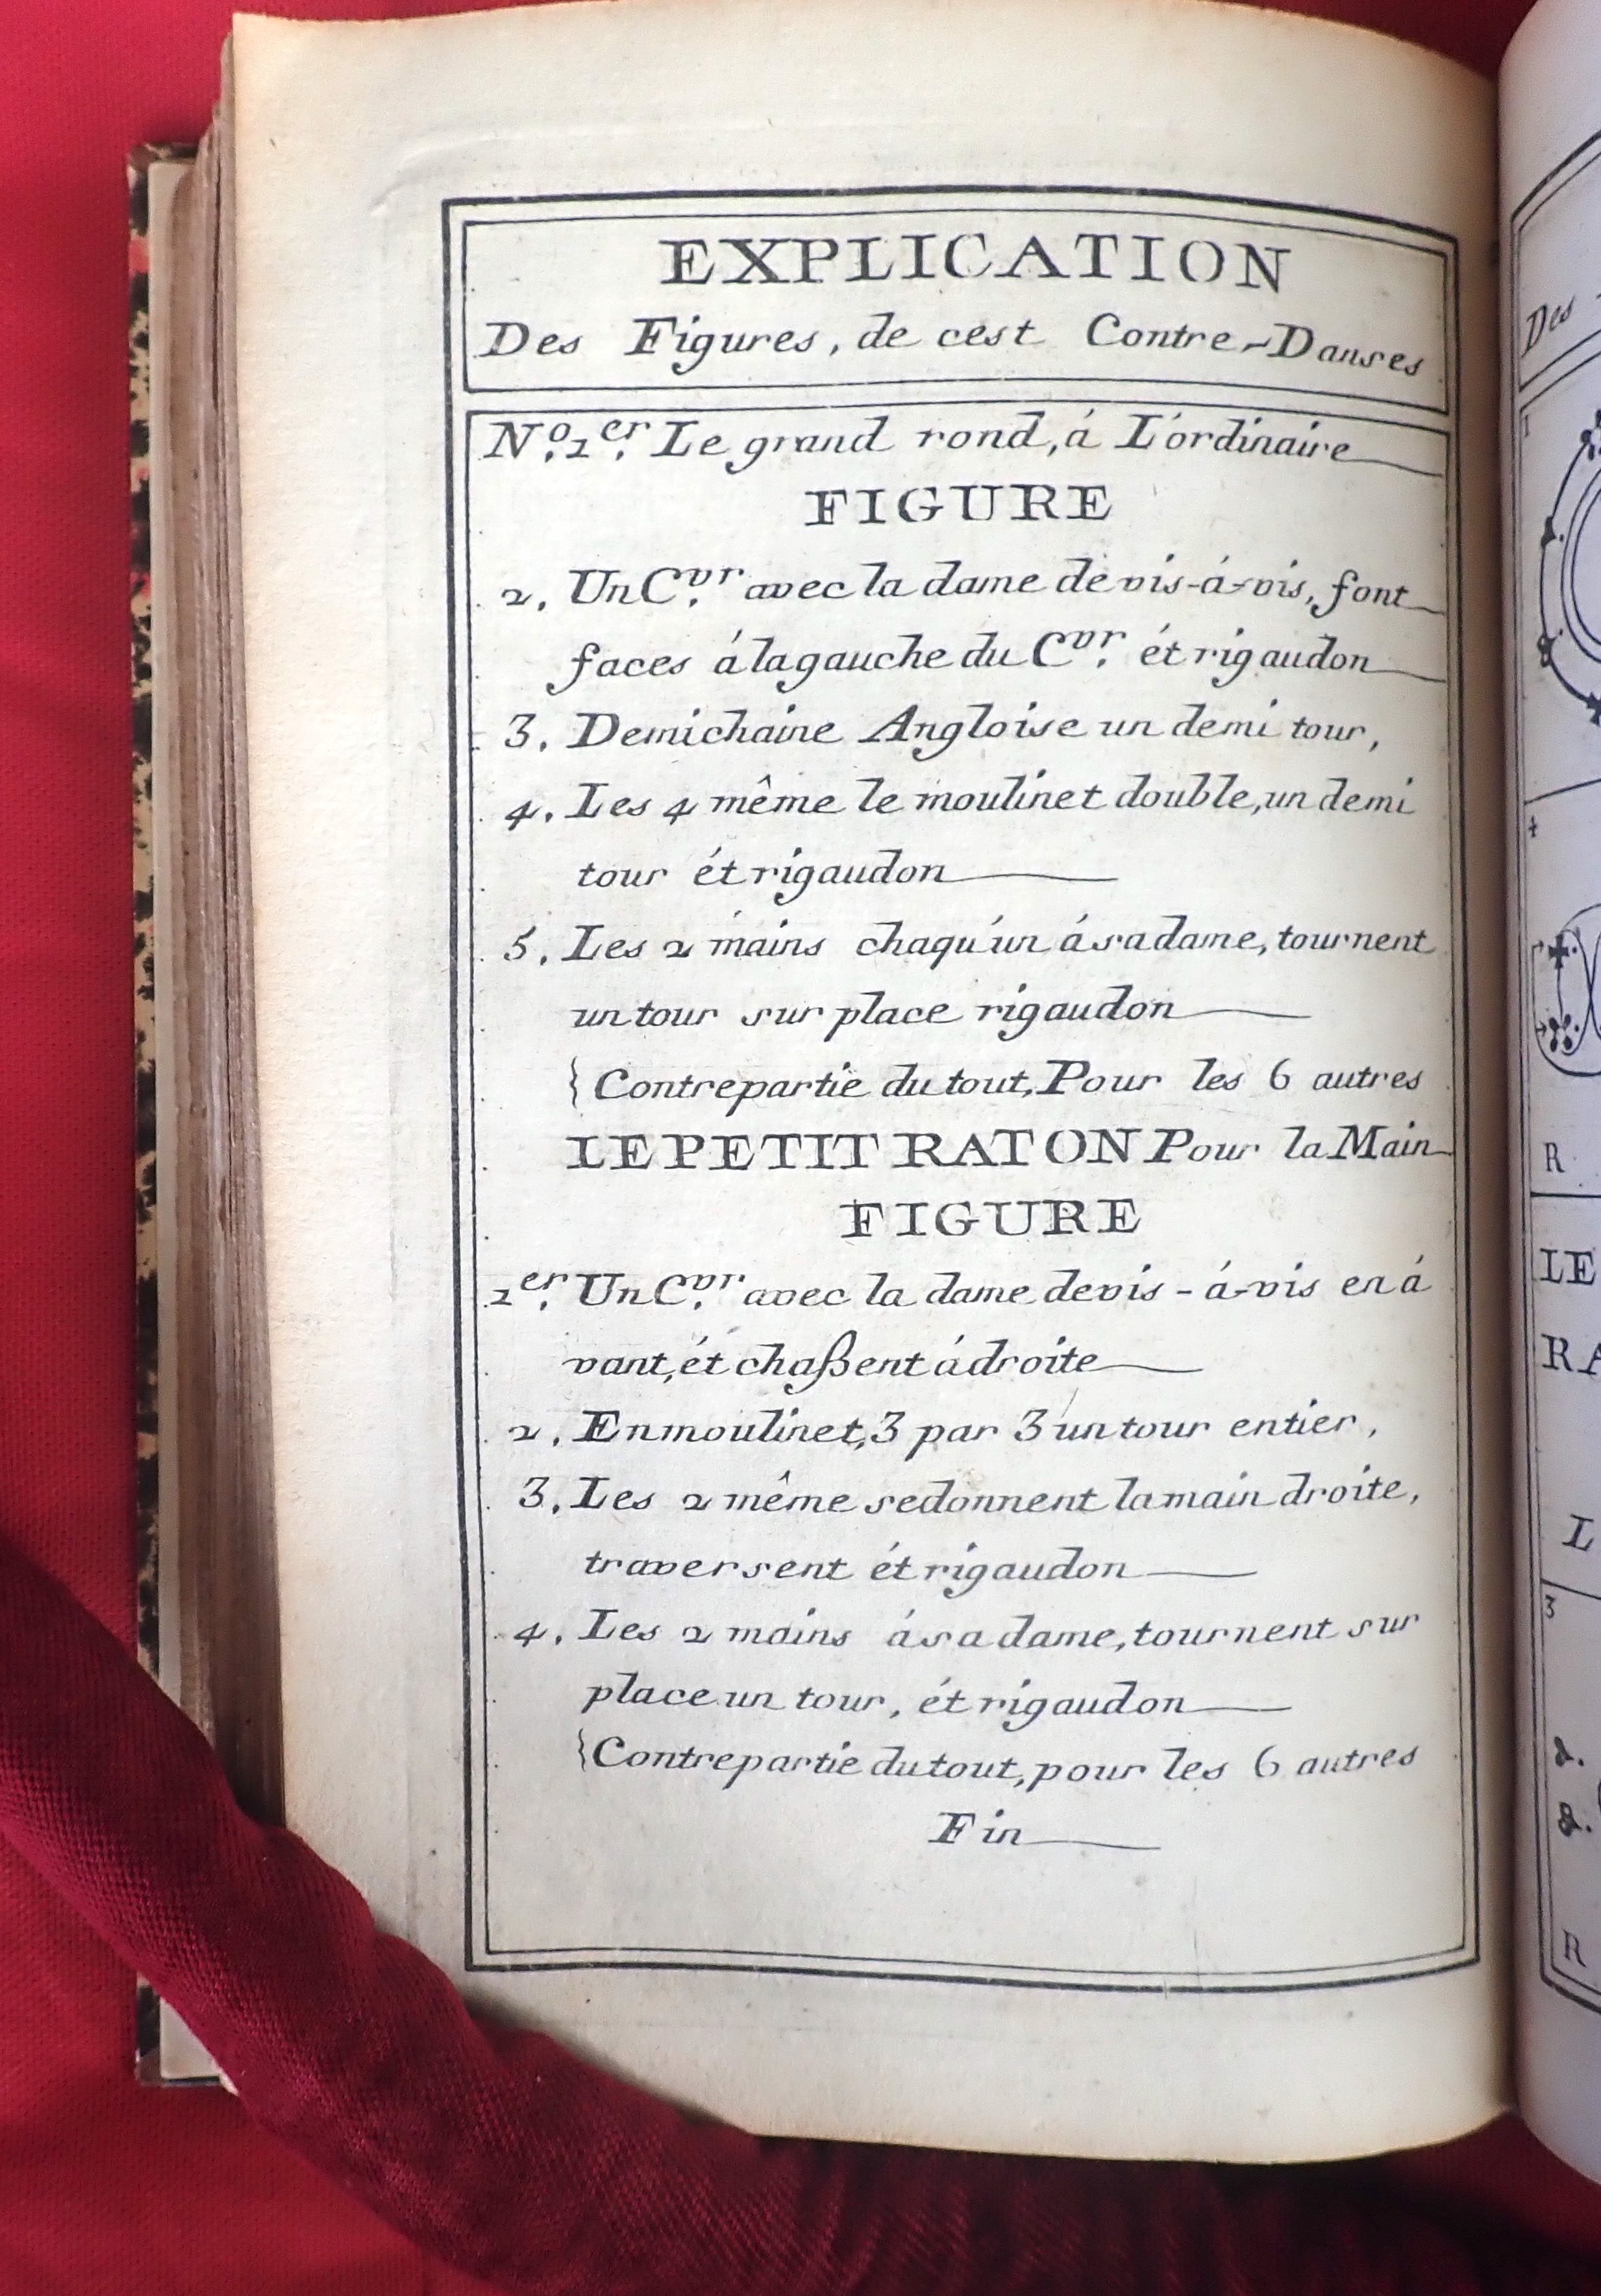 EXPLICATION
Des Figures, de cest Contre-Danses
N.º 1.er Le grand rond, á L'ordinaire
FIGURE
2. Un C.vr avec la dame de vis-á-vis, font
faces á la gauche du C.vr ét rigaudon
3. Demi chaine Angloise un demi tour,
4. Les 4 même le moulinet double, un demi
tour ét rigaudon
5. Les 2 mains chaqu'un á sa dame, tournent
un tour sur place rigaudon
{Contrepartie du tout, Pour les 6 autres
LE PETIT RATON Pour la Main
FIGURE
1.er Un C.vr avec la dame de vis-á-vis en á
vant, ét chaßent á droite
2. En moulinet, 3 par 3 un tour entier,
3. Les 2 même se donnent la main droite,
traversent ét rigaudon
4. Les 2 mains á sa dame, tournent sur
place un tour, ét rigaudon
{Contrepartie du tout, pour les 6 autres
Fin
Des
1
4
R
LE
RA
L
3
R